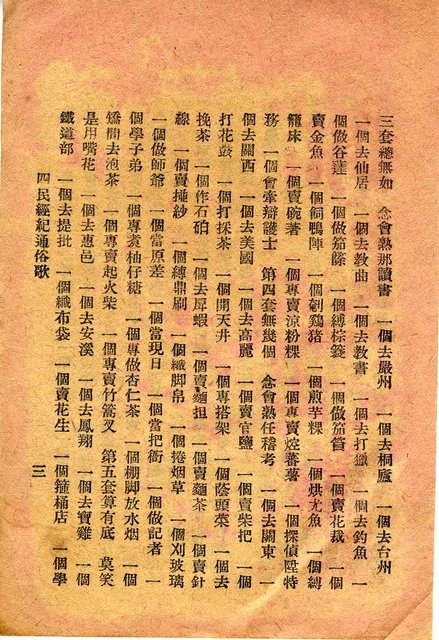 三套總無如　念會熟那讀書　一個去嚴州　一個去桐廬　一個去台州
一個去仙居　一個去教曲　一個去教書　一個去打獵　一個去釣魚　一
個做谷蓮　一個做笳篨　一個縛棕簑　一個做笳筲　一個賣花裁　一個
賣金魚　一個飼鴨陣　一個剝鷄猪　一個煎芋粿　一個烘尤魚　一個縛
籠床　一個賣碗著　一個專賣涼粉粿　一個專賣焢蕃薯　一個探偵陞特
務　一個會牽辯護士　第四套無幾個　念會熟任稽考　一個去關東　一
個去關西　一個去美國　一個去高麗　一個賣官鹽　一個賣柴把　一個
打花鼓　一個打採茶　一個開天井　一個專搭架　一個陰頭菜　一個去
挽茶　一個作石硈　一個去戽蝦　一個賣麵担　一個賣麵茶　一個賣針
線　一個賣捶紗　一個縛鼎刷　一個織脚帛　一個捲烟草　一個刈玻璃
一個做師爺　一個當原差　一個當現日　一個當把衙　一個做記者　一
個學子弟　一個專賣柚仔糖　一個專做杏仁茶　一個棚脚放水烟　一個
矯間去泡茶　一個專賣起火柴　一個專賣竹篙叉　第五套算有底　莫笑
是用嘴花　一個去惠邑　一個去安溪　一個去鳳翔　一個去寶雞　一個
鐵道部　一個去提批　一個織布袋　一個賣花生　一個箍桶店　一個學
四民經紀通俗歌　三